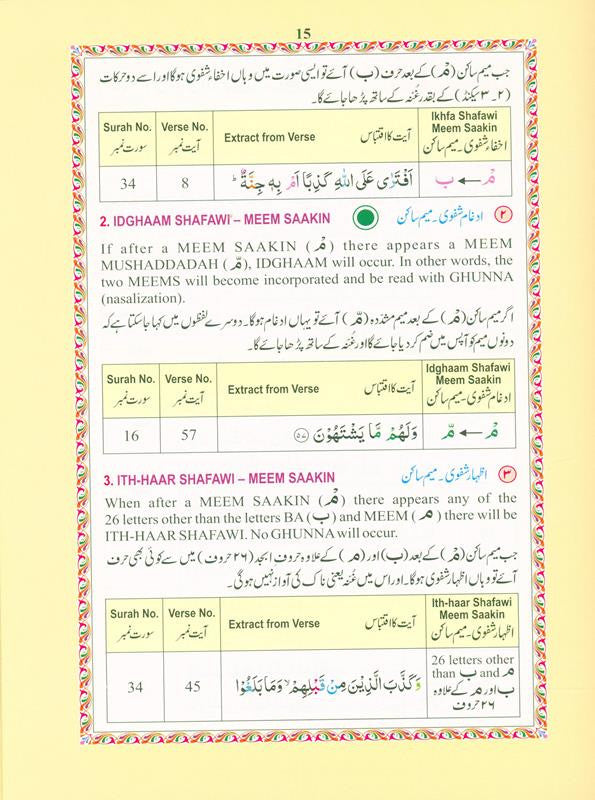 15
جب میم ساکن (مْ) کے بعد حرف (ب) آئے تو ایسی صورت میں وہاں اخفاء شفوی ہوگا اور اسے دو حرکات
(۲۔۳ سیکنڈ) کے بقدر غُنہ کے ساتھ پڑھا جائے گا۔
Surah No. سورت نمبر
Verse No. آیت نمبر
Extract from Verse آیت کا اقتباس
Ikhfa Shafawi
Meem Saakin
اخفاء شفوی۔ میم ساکن
34
8
اَفْتَرٰى عَلَى اللّٰهِ كَذِبًا اَمْ بِهٖ جِنَّةٌ ؕ
مْ ← ب
2. IDGHAAM SHAFAWI – MEEM SAAKIN
ادغام شفوی۔ میم ساکن ۲
If after a MEEM SAAKIN (مْ) there appears a MEEM
MUSHADDADAH (مّ), IDGHAAM will occur. In other words, the
two MEEMS will become incorporated and be read with GHUNNA
(nasalization).
اگر میم ساکن (مْ) کے بعد میم مشددہ (مّ) آئے تو یہاں ادغام ہوگا۔ دوسرے لفظوں میں کہا جاسکتا ہے کہ
دونوں میم کو آپس میں ضم کر دیا جائے گا اور غُنہ کے ساتھ پڑھا جائے گا۔
Surah No. سورت نمبر
Verse No. آیت نمبر
Extract from Verse آیت کا اقتباس
Idghaam Shafawi
Meem Saakin
ادغام شفوی۔ میم ساکن
16
57
وَلَهُمْ مَّا يَشْتَهُوْنَ ۝۵۷
مْ ← مّ
3. ITH-HAAR SHAFAWI – MEEM SAAKIN
اظہار شفوی۔ میم ساکن ۳
When after a MEEM SAAKIN (مْ) there appears any of the
26 letters other than the letters BA (ب) and MEEM (م) there will be
ITH-HAAR SHAFAWI. No GHUNNA will occur.
جب میم ساکن (مْ) کے بعد (ب) اور (م) کے علاوہ حروف ابجد (۲۶ حروف) میں سے کوئی بھی حرف
آئے تو وہاں اظہار شفوی ہوگا۔ اور اس میں غُنہ یعنی ناک کی آواز نہیں ہوگی۔
Surah No. سورت نمبر
Verse No. آیت نمبر
Extract from Verse آیت کا اقتباس
Ith-haar Shafawi
Meem Saakin
اظہار شفوی۔ میم ساکن
34
45
وَكَذَّبَ الَّذِيْنَ مِنْ قَبْلِهِمْ ۙ وَمَا بَلَغُوْا
26 letters other
than ب and م
ب اور م کے علاوہ
۲۶ حروف